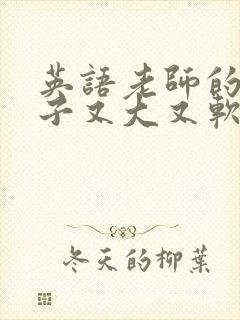 英語老師的
子又大又軟
冬天的柳葉